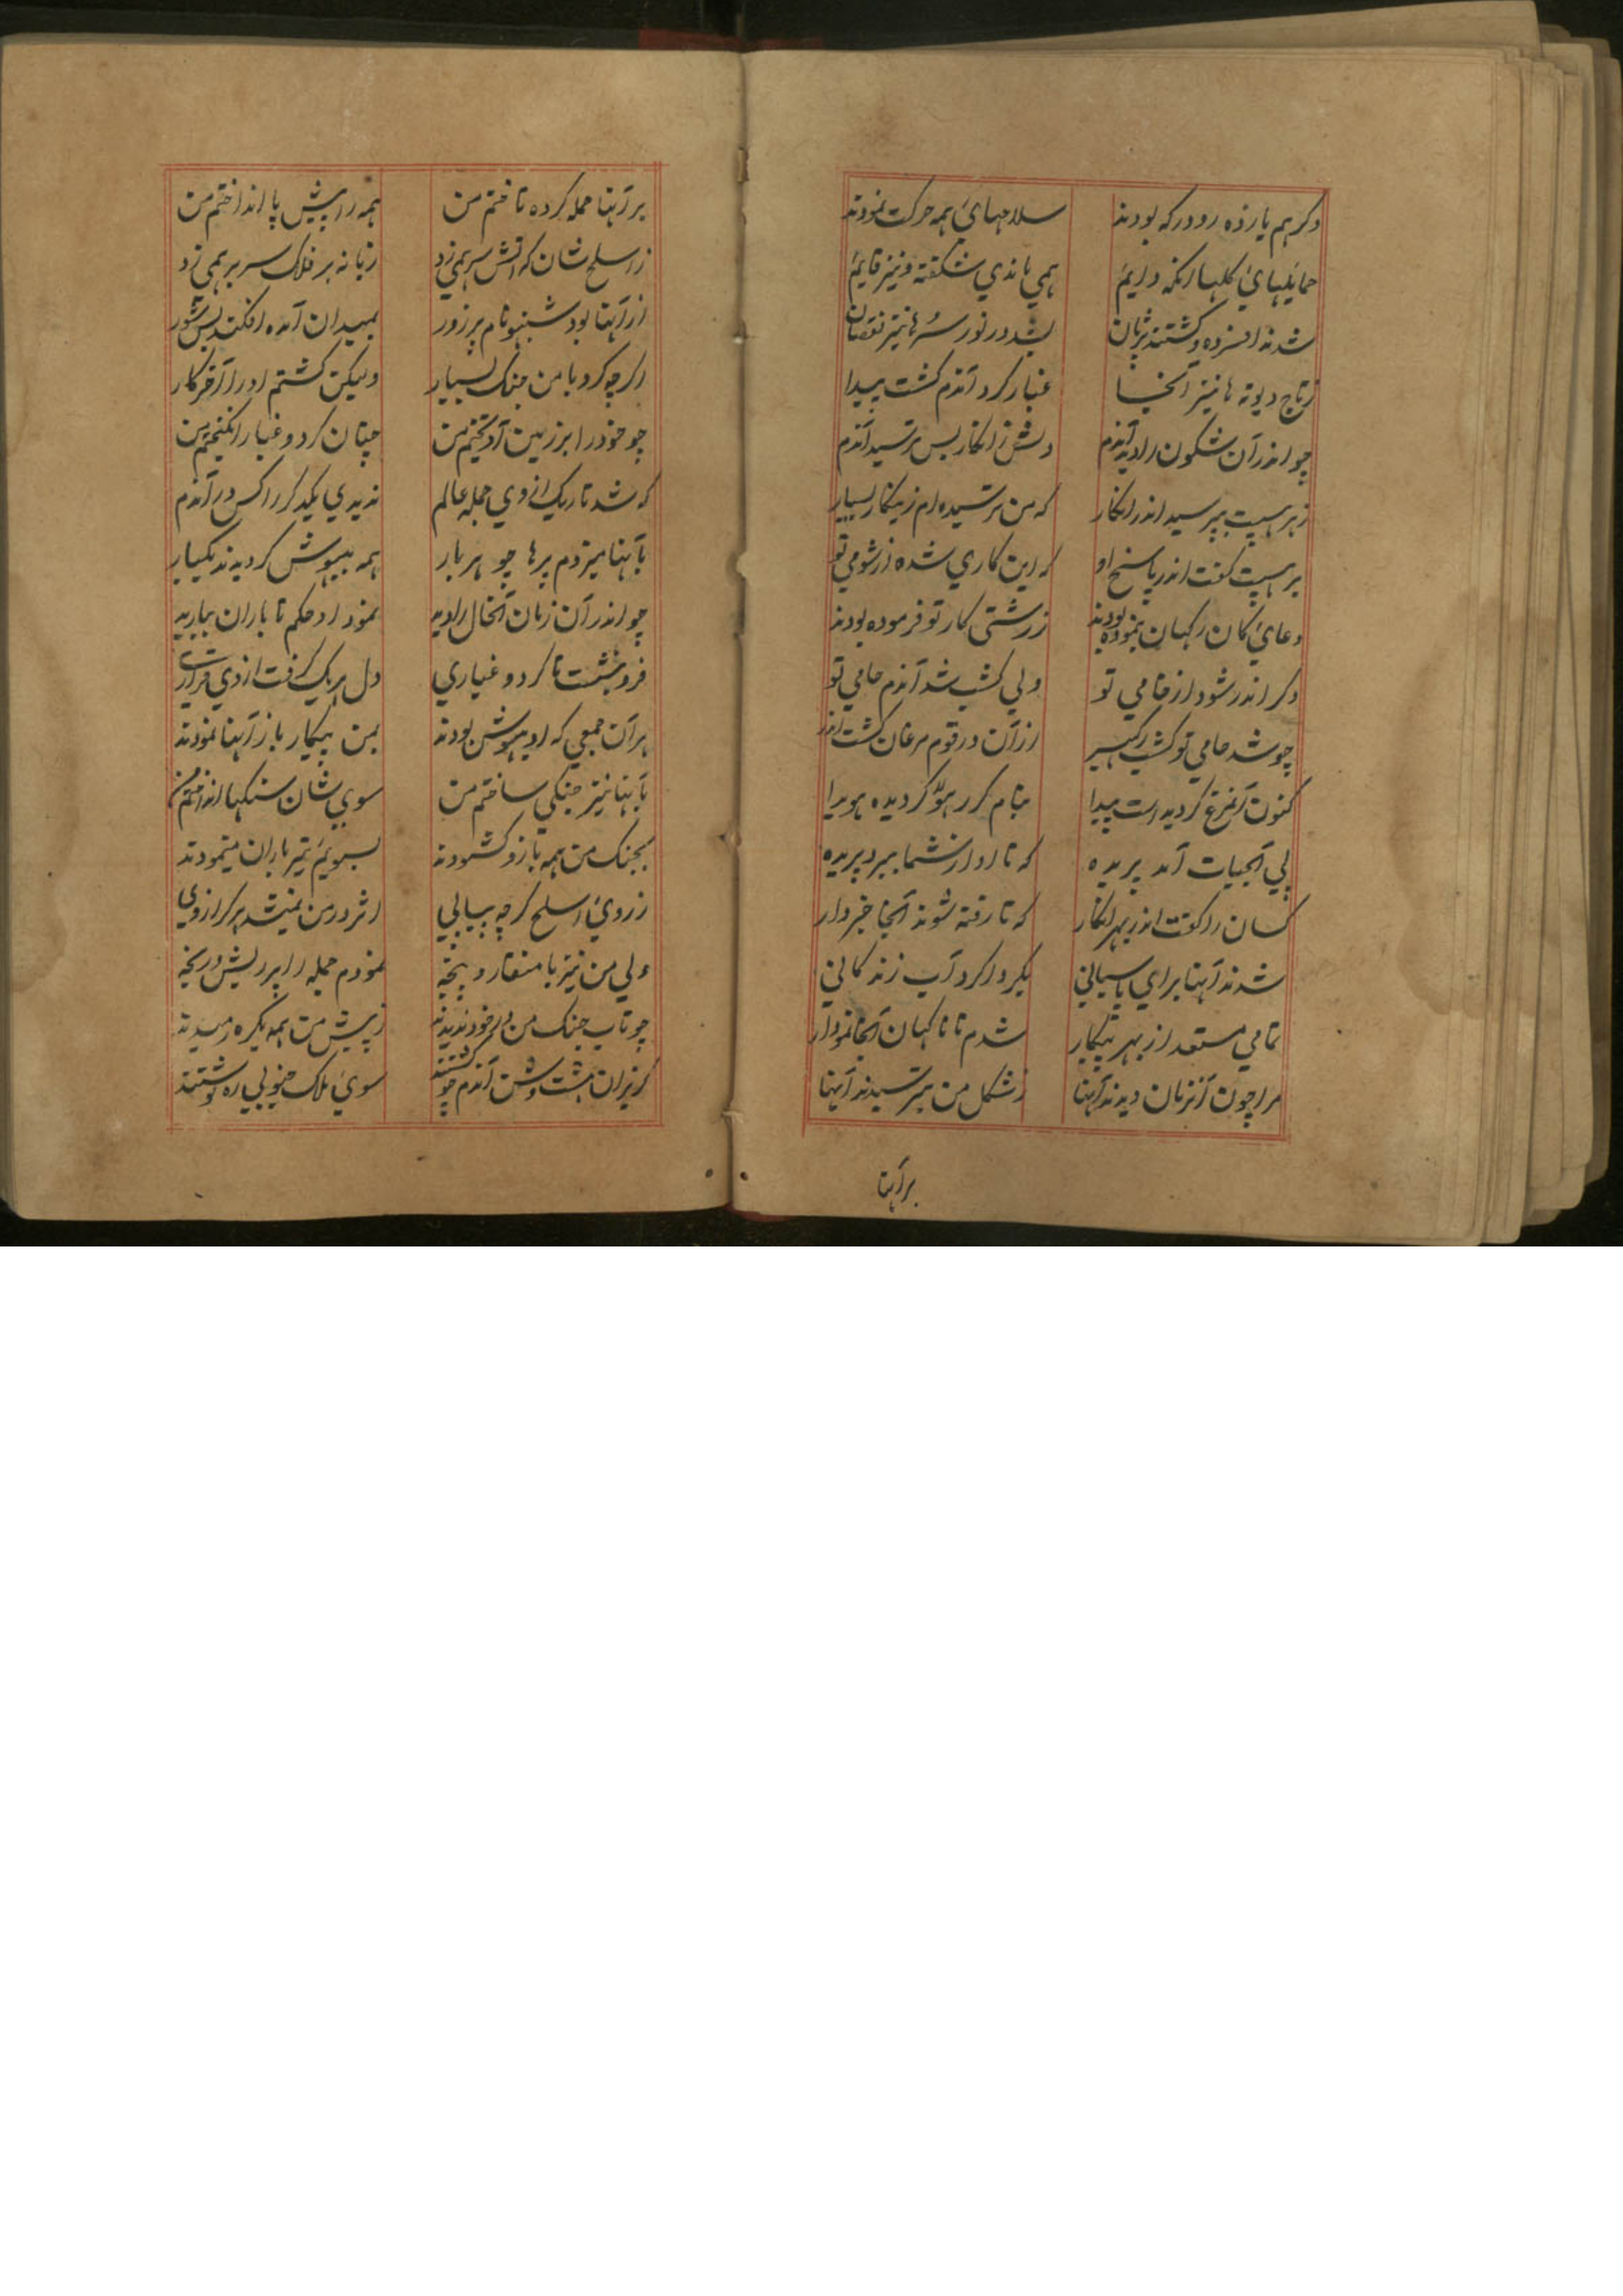 دکر هم یازده رودر که بودند سلاحهای همه حرکت نمودند
حمایلهای کلها انکه دایم همی ماندی شکفته و نیز قایم
شدند افسرده و کشتند پژمان بشد در نور سرها نیز نقصان
زتاج دیوته ها نیز آنجا غبار کرد آندم کشت پیدا
چو اندر آن شکون را دید آندم دلش زانکار بس ترسید آندم
زبرهسپت بپرسید اندر انکار که من ترسیده ام زینکار بسیار
برهسپت کفت اندر پاسخ او که این کاری شده از شومی تو
دعای کان رکهیان بنموده بودند ز زشتی کار تو فرموده بودند
دکر اندر شود از خامی تو ولی کشپ شد آندم حامی تو
چو شد حامی تو کشپ رکهیسر از آن در قوم مرغان کشت اندر
کنون آنمرغ کردید است پیدا بنام کرر هو کردیده هویدا
پی آبحیات آمد پریده که تا او از شما ببرد پریده
کسان را کفت اندر بهر انکار که تا رفته شوند آنجا خبردار
شدند آنها برای پاسبانی بکرداکرد آب زندکانی
تمامی مستعد از بهر پیکار شدم تا ناکهان آنجا نمودار
مرا چون آنزمان دیدند آنها ز شکل من بترسیدند آنها
برآنها
برآنها حمله کرده تاختم من همه را پیش پا انداختم من
ز اسلح شان که آتش سر همی زد زبانه بر فلاک سر بر همی زد
از آنها بود شنبهو نام پر زور بمیدان آمده افکند بس شور
اکرچه کرد با من جنک بسیار ولیکن کشتم او را آخر کار
چو خود را بر زمین آویختم من چنان کرد و غبار انکیختم من
که شد تاریک از وی جمله عالم ندیدی یکدکر را کس در آندم
بآنها میزدم پرها چو هر بار همه بیهوش کردیدند یکبار
چو اندر آن زمان آنحال را دید نمود او حکم تا باران ببارید
فرو بنشست تا کرد و غباری دل هر یک کرفت از وی قراری
هر آن جمعی که او بیهوش بودند بمن پیکار باز آنها نمودند
بآنها نیز جنکی ساختم من سوی شان سنکها انداختم من
بجنک من همه بازو کشودند بسویم تیر باران مینمودند
ز روی اسلح کرچه پیاپی اثر در من نمیشد هرکز از وی
ولی من نیز با منقار و پنجه نمودم جمله را پر ریش و رنجه
چو تاب جنک من در خود ندیدند ز پیش من همه یکره رمیدند
کریزان هشت وشن آندم چو کشتند سوی ملاک جنوبی ره نوشتند